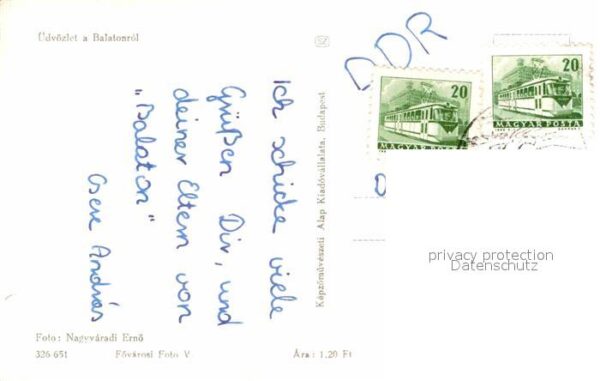 Üdvözlet a Balatonról
Ich schicke viele
Grüßen Dir, und
deiner Eltern von
„Balaton"
Csere András
Képzőművészeti Alap Kiadóvállalata, Budapest
DDR
20
MAGYAR POSTA
20
MAGYAR POSTA
privacy protection
Datenschutz
Foto: Nagyváradi Ernő
326-651 Fővárosi Foto V. Ára: 1,20 Ft